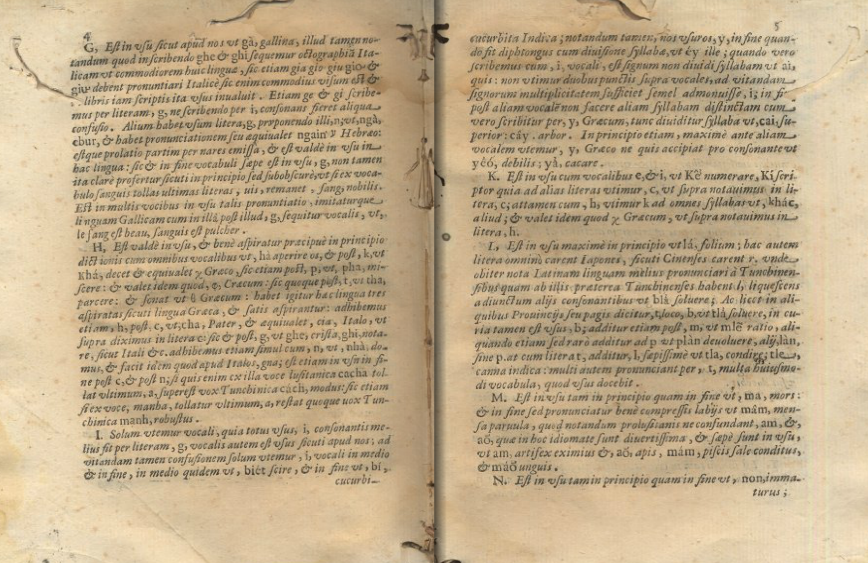 4
G, Est in vsu sicut apud nos vt gà, gallina, illud tamen no-
tandum quod in scribendo ghe & ghi sequemur octographiã Ita-
licam vt commodiorem huic linguæ, sic etiam gia gio giu gio &
giu debent pronuntiari Italicè sic enim commodius visum est &
libris iam scriptis ita vsus inualuit. Etiam ge & gi scribe-
mus per literam, g, ne scribendo per i, consonans fieret aliqua
confusio. Alium habet vsum litera, g, præponendo illi, n, vt, ngà,
ebur, & habet pronunciationem seu æquiualet ngain y Hebræo:
estque prolatio partim per nares emissa, & est valdè in vsu in
hac lingua: sic & in fine vocabuli sæpe est in vsu, g, non tamen
ita clarè profertur sicuti in principio sed subobscurè, vt si ex voca-
bulo sanguis tollas vltimas literas, uis, remanet, sang, nobilis.
Est in multis vocibus in vsu talis pronuntiatio, imitaturque
linguam Gallicam cum in illa post illud, g, sequitur vocalis, vt,
le sang est beau, sanguis est pulcher.
H, Est valdè in vsu, & benè aspiratur præcipuè in principio
dictionis cum omnibus vocalibus vt, hà aperire os, & post, k, vt
khá, decet & equiualet χ Græco, sic etiam post, p, vt, pha, mi-
scere: & valet idem quod, φ, Græcum: sic quoque post, t, vt tha,
parcere: & sonat vt θ Græcum: habet igitur hac lingua tres
aspiratas sicuti lingua Græca, & satis aspirantur: adhibemus
etiam, h, post, c, vt, cha, Pater, & æquiualet, cia, Italo, vt
supra diximus in litera c: sic & post, g, vt ghe, crista, ghi, nota-
re, sicut Itali & c. adhibemus etiam simul cum, n, vt, nhà, do-
mus, & facit idem quod apud Italos, gna; est etiam in vsu in fi-
ne post c, & post n; si quis enim ex illa voce lusitanica cacha tol-
lat vltimum, a, superest vox Tunchinica cách, modus: sic etiam
si ex voce, manha, tollatur vltimum, a, restat quoque vox Tun-
chinica manh, robustus.
I. Solum vtemur vocali, quia totus vsus, i, consonantis me-
lius fit per literam, g, vocalis autem est vsus sicuti apud nos; ad
vitandam tamen confusionem solum vtemur, i, vocali in medio
& in fine, in medio quidem vt, biét scire, & in fine vt, bí,
cucurbi-
5
cucurbita Indica; notandum tamen, nos vsuros, y, in fine quan-
do fit diphtongus cum diuisione syllabæ, vt éy ille; quando vero
scribemus cum, i, vocali, est signum non diuidi syllabam vt ai,
quis: non vtimur duobus punctis supra vocales, ad vitandam
signorum multiplicitatem sufficiet semel admonuisse, i, in fi-
ne post aliam vocalẽ non facere aliam syllabam distinctam cum
vero scribitur per, y, Græcum, tunc diuiditur syllaba vt, cai, su-
perior; cây, arbor. In principio etiam, maximè ante aliam
vocalem vtemur, y, Græco ne quis accipiat pro consonante vt
yếó, debilis; yả, cacare.
K. Est in vsu cum vocalibus e, & i, vt Kẽ numerare, Kí scri-
ptor quia ad alias literas vtimur, c, vt supra notauimus in li-
tera, c; attamen cum, h, vtimur k ad omnes syllabas vt, khác,
aliud; & valet idem quod χ Græcum, vt supra notauimus in
litera, h.
L, Est in vsu maximè in principio vt lá, folium; hac autem
litera omninò carent Iapones, sicuti Cinenses carent r, vnde
obiter nota Latinam linguam melius pronunciari à Tunchinen-
sibus quam ab illis præterea Tunchinenses habent l, liquescens
adiunctum alijs consonantibus vt blá soluere; Ac licet in ali-
quibus Prouincijs seu pagis dicitur, t, loco, b, vt tlá soluere, in cu-
ria tamen est vsus, b; additur etiam post, m, vt mlẽ ratio, ali-
quando etiam sed raro additur ad p vt plàn deuoluere, alij, làn,
sine p, at cum litera t, additur, l, sæpissimè vt tla, condire; tle,
canna indica: multi autem pronunciant per, t, multa huiusmo-
di vocabula, quod vsus docebit.
M. Est in vsu tam in principio quam in fine vt, ma, mors:
& in fine sed pronunciatur benè compressis labijs vt mâm, men-
sa paruula; quod notandum prolusitanis ne confundant, am, &,
aõ, quæ in hoc idiomate sunt diuersissima, & sæpè sunt in vsu,
vt am, artifex eximius &, aõ, apis, mám, piscis sale conditus,
& máõ unguis.
N. Est in vsu tam in principio quam in fine vt, non, imma-
turus;